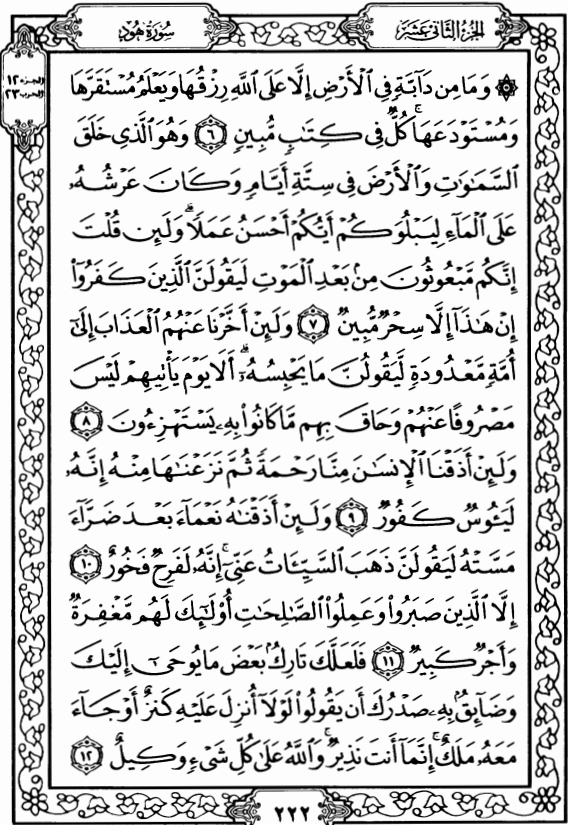 سُورَةُ هُودٍ
الجُزْءُ الثَّانِي عَشَرَ
الجزء ١٢
الحزب ٢٣
۞ وَمَا مِن دَآبَّةٍ فِي ٱلْأَرْضِ إِلَّا عَلَى ٱللَّهِ رِزْقُهَا وَيَعْلَمُ مُسْتَقَرَّهَا
وَمُسْتَوْدَعَهَا ۚ كُلٌّ فِي كِتَٰبٍ مُّبِينٍ ٦ وَهُوَ ٱلَّذِي خَلَقَ
ٱلسَّمَٰوَٰتِ وَٱلْأَرْضَ فِي سِتَّةِ أَيَّامٍ وَكَانَ عَرْشُهُۥ
عَلَى ٱلْمَآءِ لِيَبْلُوَكُمْ أَيُّكُمْ أَحْسَنُ عَمَلًا ۗ وَلَئِن قُلْتَ
إِنَّكُم مَّبْعُوثُونَ مِنۢ بَعْدِ ٱلْمَوْتِ لَيَقُولَنَّ ٱلَّذِينَ كَفَرُوٓا۟
إِنْ هَٰذَآ إِلَّا سِحْرٌ مُّبِينٌ ٧ وَلَئِنْ أَخَّرْنَا عَنْهُمُ ٱلْعَذَابَ إِلَىٰٓ
أُمَّةٍ مَّعْدُودَةٍ لَّيَقُولُنَّ مَا يَحْبِسُهُۥٓ ۗ أَلَا يَوْمَ يَأْتِيهِمْ لَيْسَ
مَصْرُوفًا عَنْهُمْ وَحَاقَ بِهِم مَّا كَانُوا۟ بِهِۦ يَسْتَهْزِءُونَ ٨
وَلَئِنْ أَذَقْنَا ٱلْإِنسَٰنَ مِنَّا رَحْمَةً ثُمَّ نَزَعْنَٰهَا مِنْهُ إِنَّهُۥ
لَيَـُٔوسٌ كَفُورٌ ٩ وَلَئِنْ أَذَقْنَٰهُ نَعْمَآءَ بَعْدَ ضَرَّآءَ
مَسَّتْهُ لَيَقُولَنَّ ذَهَبَ ٱلسَّيِّـَٔاتُ عَنِّيٓ ۚ إِنَّهُۥ لَفَرِحٌ فَخُورٌ ١٠
إِلَّا ٱلَّذِينَ صَبَرُوا۟ وَعَمِلُوا۟ ٱلصَّٰلِحَٰتِ أُو۟لَٰٓئِكَ لَهُم مَّغْفِرَةٌ
وَأَجْرٌ كَبِيرٌ ١١ فَلَعَلَّكَ تَارِكٌۢ بَعْضَ مَا يُوحَىٰٓ إِلَيْكَ
وَضَآئِقٌۢ بِهِۦ صَدْرُكَ أَن يَقُولُوا۟ لَوْلَآ أُنزِلَ عَلَيْهِ كَنزٌ أَوْ جَآءَ
مَعَهُۥ مَلَكٌ ۚ إِنَّمَآ أَنتَ نَذِيرٌ ۚ وَٱللَّهُ عَلَىٰ كُلِّ شَيْءٍ وَكِيلٌ ١٢
٢٢٢